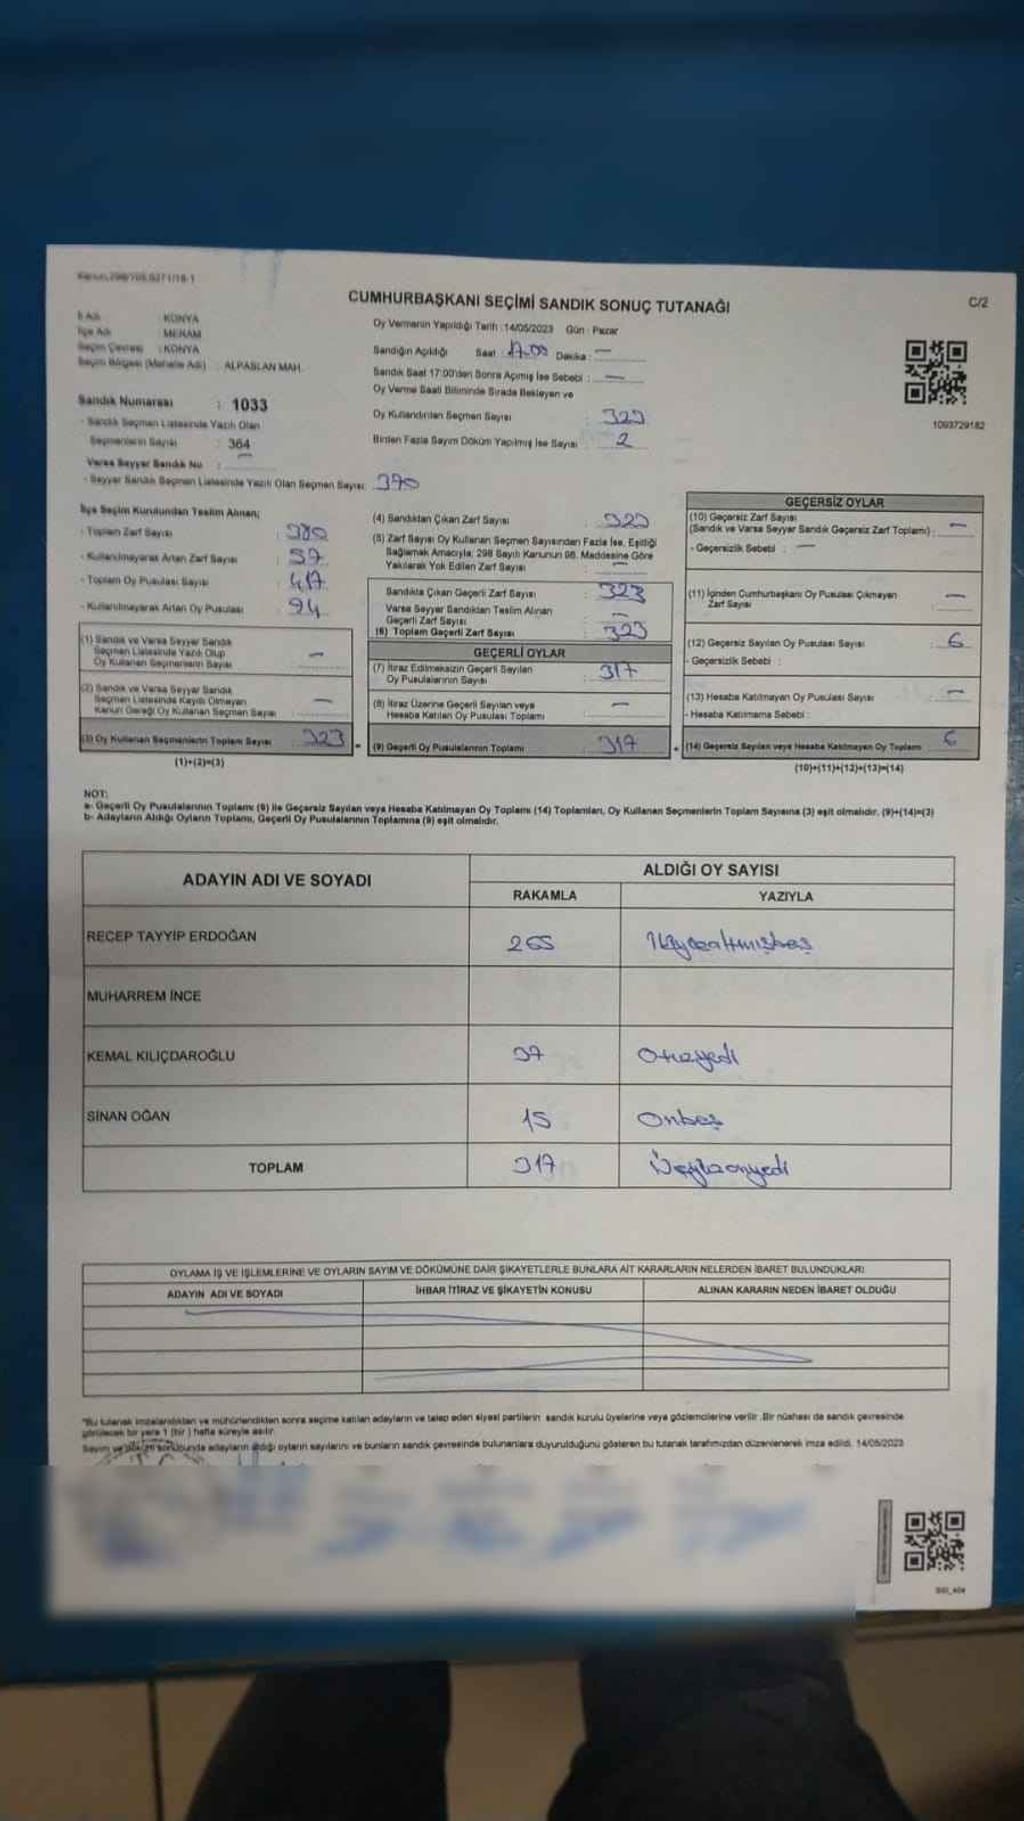 CUMHURBAŞKANI SEÇİMİ SANDIK SONUÇ TUTANAĞI
C/2
İl Adı : KONYA
İlçe Adı : MERAM
Seçim Çevresi : KONYA
Seçim Bölgesi (Mahalle Adı) : ALPASLAN MAH.
Sandık Numarası : 1033
- Sandık Seçmen Listesinde Yazılı Olan
Seçmenlerin Sayısı : 364
Varsa Seyyar Sandık No : —
- Seyyar Sandık Seçmen Listesinde Yazılı Olan Seçmen Sayısı: 370
Oy Vermenin Yapıldığı Tarih : 14/05/2023 Gün : Pazar
Sandığın Açıldığı Saat : Dakika : —
Sandık Saat 17:00'den Sonra Açılmış İse Sebebi : —
Oy Verme Saati Bitiminde Sırada Bekleyen ve
Oy Kullandırılan Seçmen Sayısı : 323
Birden Fazla Sayım Döküm Yapılmış İse Sayısı : 2
1093729182
İlçe Seçim Kurulundan Teslim Alınan;
- Toplam Zarf Sayısı : 380
- Kullanılmayarak Artan Zarf Sayısı : 57
- Toplam Oy Pusulası Sayısı : 417
- Kullanılmayarak Artan Oy Pusulası : 94
(1) Sandık ve Varsa Seyyar Sandık
Seçmen Listesinde Yazılı Olup
Oy Kullanan Seçmenlerin Sayısı : —
(2) Sandık ve Varsa Seyyar Sandık
Seçmen Listesinde Kayıtlı Olmayan
Kanun Gereği Oy Kullanan Seçmen Sayısı : —
(3) Oy Kullanan Seçmenlerin Toplam Sayısı : 323
(1)+(2)=(3)
(4) Sandıktan Çıkan Zarf Sayısı : 323
(5) Zarf Sayısı Oy Kullanan Seçmen Sayısından Fazla İse, Eşitliği
Sağlamak Amacıyla; 298 Sayılı Kanunun 98. Maddesine Göre
Yakılarak Yok Edilen Zarf Sayısı : —
Sandıkta Çıkan Geçerli Zarf Sayısı : 323
Varsa Seyyar Sandıktan Teslim Alınan
Geçerli Zarf Sayısı : —
(6) Toplam Geçerli Zarf Sayısı : 323
GEÇERLİ OYLAR
(7) İtiraz Edilmeksizin Geçerli Sayılan
Oy Pusulalarının Sayısı : 317
(8) İtiraz Üzerine Geçerli Sayılan veya
Hesaba Katılan Oy Pusulası Toplamı : —
(9) Geçerli Oy Pusulalarının Toplamı : 317
GEÇERSİZ OYLAR
(10) Geçersiz Zarf Sayısı
(Sandık ve Varsa Seyyar Sandık Geçersiz Zarf Toplamı) : —
- Geçersizlik Sebebi : —
(11) İçinden Cumhurbaşkanı Oy Pusulası Çıkmayan
Zarf Sayısı : —
(12) Geçersiz Sayılan Oy Pusulası Sayısı : 6
- Geçersizlik Sebebi :
(13) Hesaba Katılmayan Oy Pusulası Sayısı : —
- Hesaba Katılmama Sebebi :
(14) Geçersiz Sayılan veya Hesaba Katılmayan Oy Toplamı : 6
(10)+(11)+(12)+(13)=(14)
NOT:
a- Geçerli Oy Pusulalarının Toplamı (9) ile Geçersiz Sayılan veya Hesaba Katılmayan Oy Toplamı (14) Toplamları, Oy Kullanan Seçmenlerin Toplam Sayısına (3) eşit olmalıdır. (9)+(14)=(3)
b- Adayların Aldığı Oyların Toplamı, Geçerli Oy Pusulalarının Toplamına (9) eşit olmalıdır.
ADAYIN ADI VE SOYADI
ALDIĞI OY SAYISI
RAKAMLA YAZIYLA
RECEP TAYYİP ERDOĞAN 265 İkiyüzaltmışbeş
MUHARREM İNCE
KEMAL KILIÇDAROĞLU 37 Otuzyedi
SİNAN OĞAN 15 Onbeş
TOPLAM 317 Üçyüzonyedi
OYLAMA İŞ VE İŞLEMLERİNE VE OYLARIN SAYIM VE DÖKÜMÜNE DAİR ŞİKAYETLERLE BUNLARA AİT KARARLARIN NELERDEN İBARET BULUNDUKLARI
ADAYIN ADI VE SOYADI İHBAR İTİRAZ VE ŞİKAYETİN KONUSU ALINAN KARARIN NEDEN İBARET OLDUĞU
"Bu tutanak imzalandıktan ve mühürlendikten sonra seçime katılan adayların ve talep eden siyasi partilerin sandık kurulu üyelerine veya gözlemcilerine verilir. Bir nüshası da sandık çevresinde
görülecek bir yere 1 (bir) hafta süreyle asılır.
Sayım ve döküm sonucunda adayların aldığı oyların sayılarını ve bunların sandık çevresinde bulunanlara duyurulduğunu gösteren bu tutanak tarafımızdan düzenlenerek imza edildi. 14/05/2023